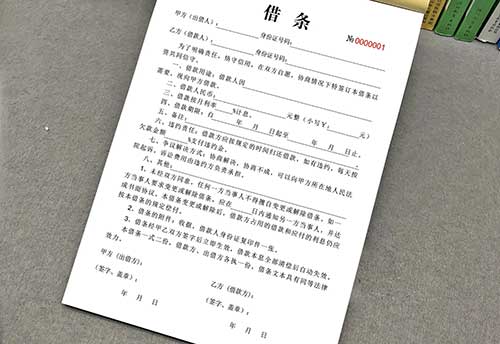 借 条
№0000001
甲方（出借人）：________身份证号码：________
乙方（借款人）：________身份证号码：________
为了明确责任，恪守信用，在双方自愿、协商情况下特签订本借条以
资共同信守。
一、借款用途：借款人因________
需要，现向甲方借款。
二、借款人民币：________元整（小写￥：____元）
三、借款按月利率____%计息。
四、借款期限：自____年__月__日起至____年__月__日止。
五、备注：________
六、违约责任：借款方应按规定的时间归还借款，如有违约，每天按
欠款金额____%支付违约金。
七、争议解决方式：协商解决，协商不成，可以向甲方所在地人民法
院起诉，诉讼费用由违约方负责承担。
八、其他：
1.未经双方同意，任何一方当事人不得擅自变更或解除借条，如一
方当事人要求变更或解除借条，应在____日内通知另一方当事人，并达
成书面协议，本借条变更或解除后，借款方占用的借款和应付的利息仍应
按本借条的规定偿付。
2.借条的附件：收据、借款人身份证复印件一张。
3.借条经甲乙双方签字后立即生效，借款本息全部清偿后自动失效。
本借条一式二份，借款方、出借方各执一份，借条文本具有同等法律
效力。
甲方（出借方）：
乙方（借款方）：
（签字、盖章）：
（签字、盖章）：
年 月 日
年 月 日